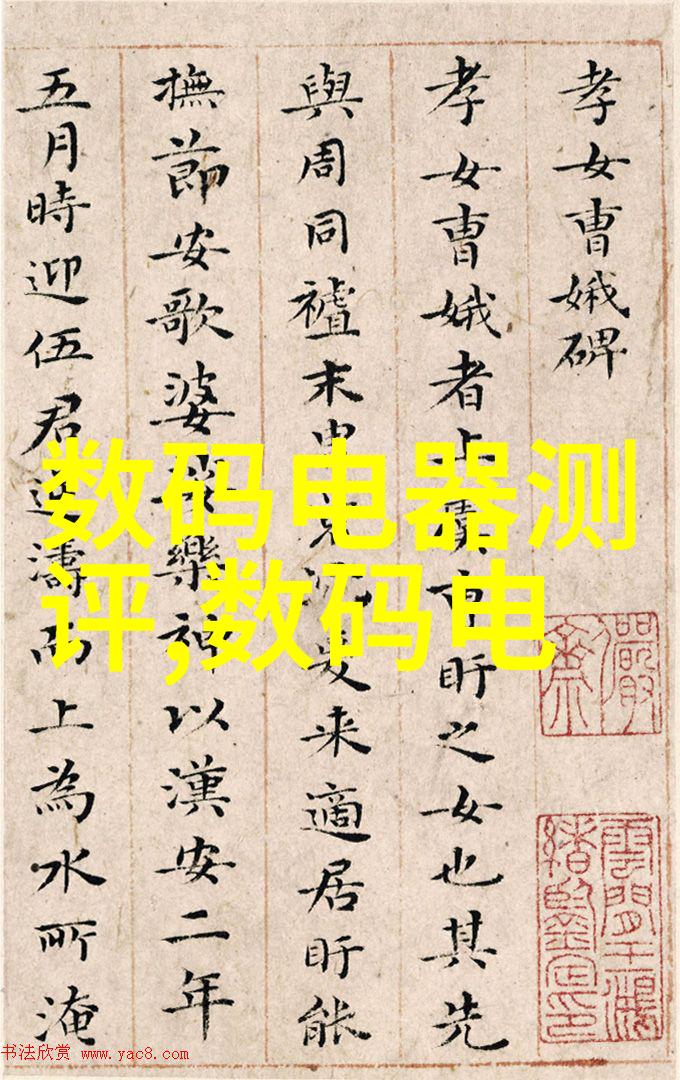 孝女曹娥碑
孝女曹娥者上盱之女也其先
與周同禮末来適居盱能
撫節安歌婆娑樂神以漢安二年
五月時迎伍君逆濤而上為水所淹
数码电器测
评,数码电
儼齋
雲間王鴻緒鑒定印
书法欣赏 www.yac8.com